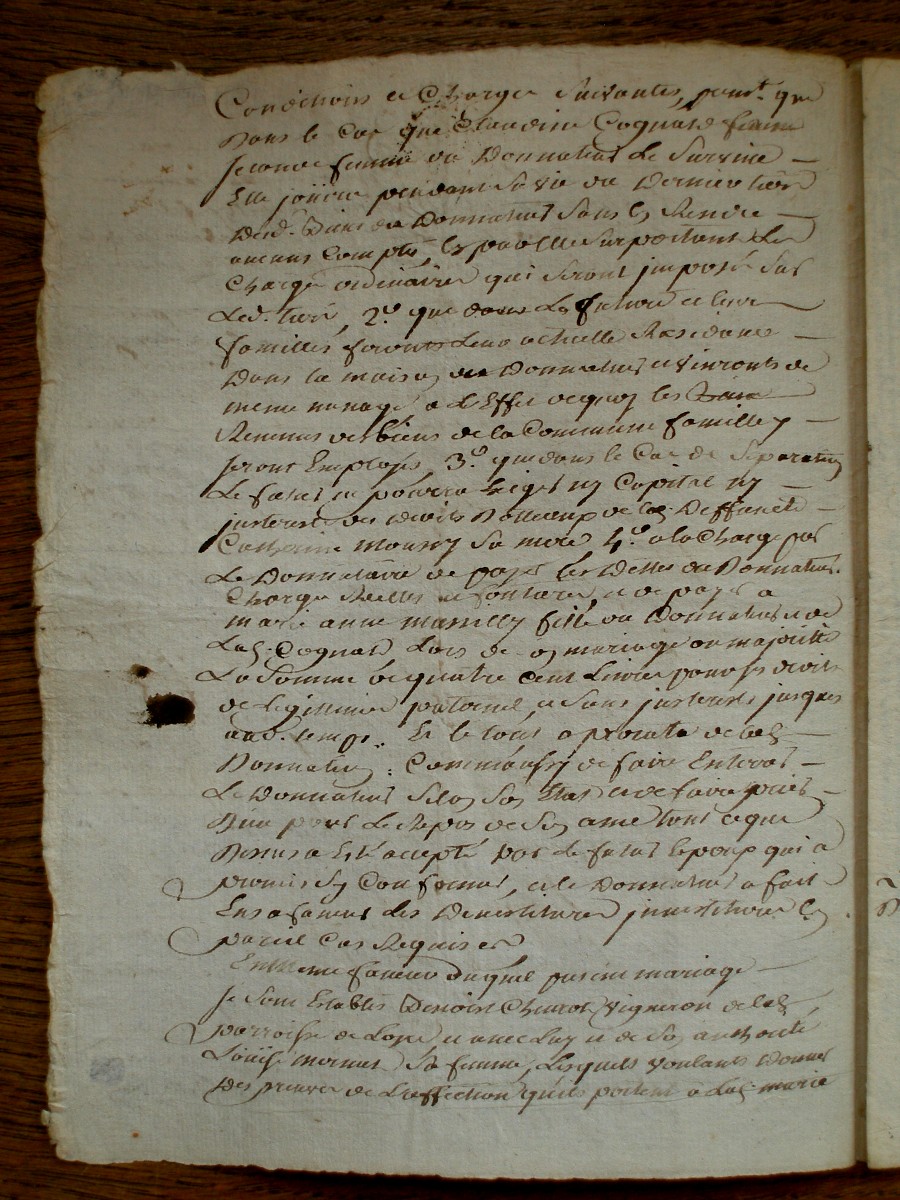 Conditions et Charges Suivantes, premt. que
Dans le Cas que Claudine Cognard femme
Seconde femme du Donnateur Le Survive
Elle joüira pendant Sa vie du Dernier tiers
Desd. Biens du Donnateur Sans En Rendre
aucuns Comptes, Elle Supportant Les
Charges ordinaires qui Seront jmposés Sur
Led. tiers, 2°. que Les futurs et leurs
familles feronts Leur actuelle Residance
Dans la maison du Donnateur et vivronts de
meme menage, a L'Effet dequoy les
Revenus des biens de la Commune famille y
Seront Employés, 3°. que dans le Cas de Separation
Le futur ne pourra Exiger ny Capital ny
jnterest des Droits de lad. Deffuncte
Catherine Sa mere 4°. a la Charge par
Le Donnataire de payer les Dettes du Donnateur
Charges Réelles et foncieres, et de payer a
marie anne fille du Donnateur et de
Lad. Cognard Lors de Son mariage ou majorité
La Somme de quatre Cent Livres pour ses droits
de Légitime paternel, et Sans jnterests jusques
aud. temps. Et le tout a prorata de lad.
Donnation: Comm'aussy de faire Enterrer
Le Donnateur Selon Son Etat et de faire prier
Dieu pour Le Repos de Son ame tout ce que
Dessus a Esté accepté par Le futur Epoux qui a
promis S'y Conformer, et le Donnateur a fait
En Sa faveur les Devestitures jnvestitures En
pareil Cas Requises
En meme faveur duquel futur mariage
Se Sont Etablis Benoist vigneron de lad.
parroisse de et avec Luy et de Son authorité
Loüise Sa femme, Lesquels voulants Donner
Des preuves de L'affection qu'ils portent a Lad. marie